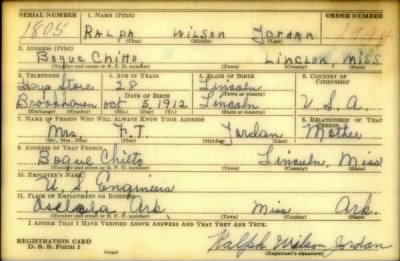 SERIAL NUMBER 1. NAME (Print) ORDER NUMBER
1805 RALPH WILSON JORDAN
(First) (Middle) (Last)
2. ADDRESS (Print)
BOGUE CHITTO LINCLON, MISS
(Number and street or R. F. D. number) (Town) (County) (State)
3. TELEPHONE 4. AGE IN YEARS 5. PLACE OF BIRTH 6. COUNTRY OF CITIZENSHIP
Store 28 Lincoln
DATE OF BIRTH (Town or county)
Oct 5, 1912 Lincoln U.S.A.
(Exchange) (Number) (Mo.) (Day) (Yr.) (State or country)
7. NAME OF PERSON WHO WILL ALWAYS KNOW YOUR ADDRESS 8. RELATIONSHIP OF THAT PERSON
Mrs. F.T. Jordan Mother
(Mr., Mrs., Miss) (First) (Middle) (Last)
9. ADDRESS OF THAT PERSON
Bogue Chitto Lincoln, Miss
(Number and street or R. F. D. number) (Town) (County) (State)
10. EMPLOYER'S NAME
U. S. Engineers
11. PLACE OF EMPLOYMENT OR BUSINESS
Ark. Miss Ark.
(Number and street or R. F. D. number) (Town) (County) (State)
I AFFIRM THAT I HAVE VERIFIED ABOVE ANSWERS AND THAT THEY ARE TRUE.
REGISTRATION CARD
D. S. S. Form 1 (over) Ralph Wilson Jordan
(Registrant's signature)